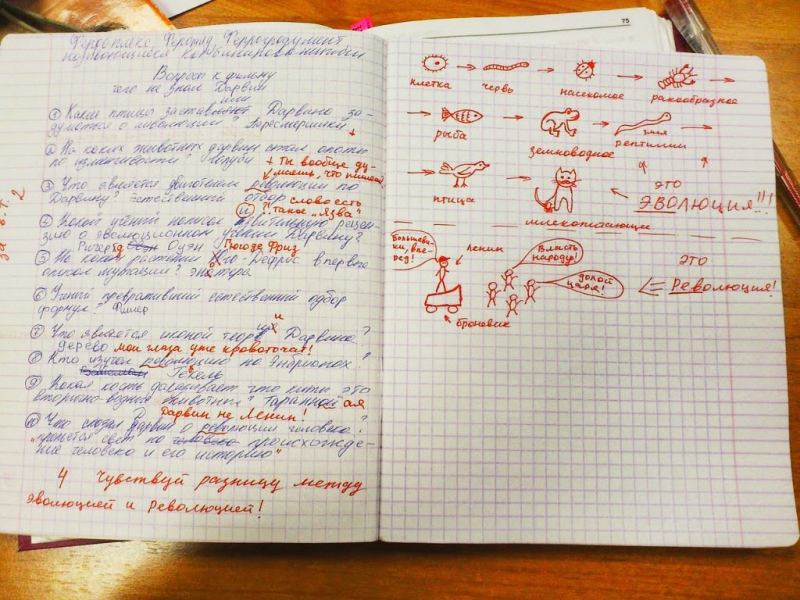 Вопросы к фильму
чего не знал Дарвин
① Какие птицы заставили Дарвина за-
думаться о эволюции Пересмешники
② На каких животных дарвин
по изменчивости? Голуби
+ Ты вообще ду-
маешь, что пишешь
③ Что является двигателем революции по
Дарвину? естественный отбор
слово есть
такое "Язва"
④ Какой учёный написал рецен-
зию о эволюционном учении Дарвину?
Ричерд Оуэн
Гюго Де Фриз
⑤ На каком растении Гю-Дефрис впервые
описал мутации? энотура
⑥ Учёный превративший естественный отбор
формулу? Фишер
⑦ Что является иконой теории Дарвина?
дерево мои глаза уже кровоточат!
⑧ Кто изучал революцию по Эмбрионах?
Гекель
⑨ Какая кость доказывает что киты это
вторично-водные животные? Таранной ая
Дарвин не Ленин!
⑩ Что сказал Дарвин о революции человека?
"прольётся свет на человека происхожде-
ние человека и его историю"
4 Чувствуй разницу между
эволюцией и революцией!
75
клетка червь насекомое ракообразное
рыба земноводное змея рептилии
птица млекопитающие
это
ЭВОЛЮЦИЯ!!!
Большеви-
ки, впе-
рёд!
Ленин
Власть
народу!
долой
царя!
броневик
это
Революция!